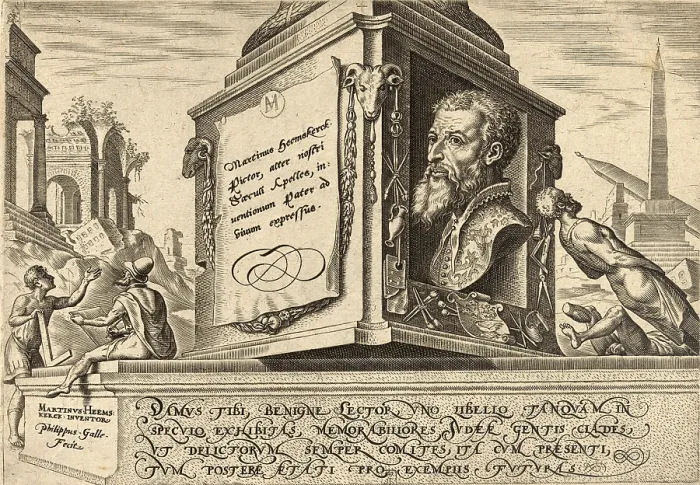 M
Martinus Heemskerck
Pictor, alter nostri
Sæculi Apelles, in=
uentionum Pater ad
viuum expressus.
MARTINVS HEEMS
KERCK INVENTOR
Philippus Galle
Fecit
DAMVS TIBI, BENIGNE LECTOR, VNO LIBELLO, TANQVAM IN
SPECVLO EXHIBITAS, MEMORABILIORES IVDEÆ GENTIS CLADES,
VT DELICTORVM SEMPER COMITES, ITA CVM PRÆSENTI,
TVM POSTERÆ ÆTATI PRO EXEMPLIS FVTVRAS